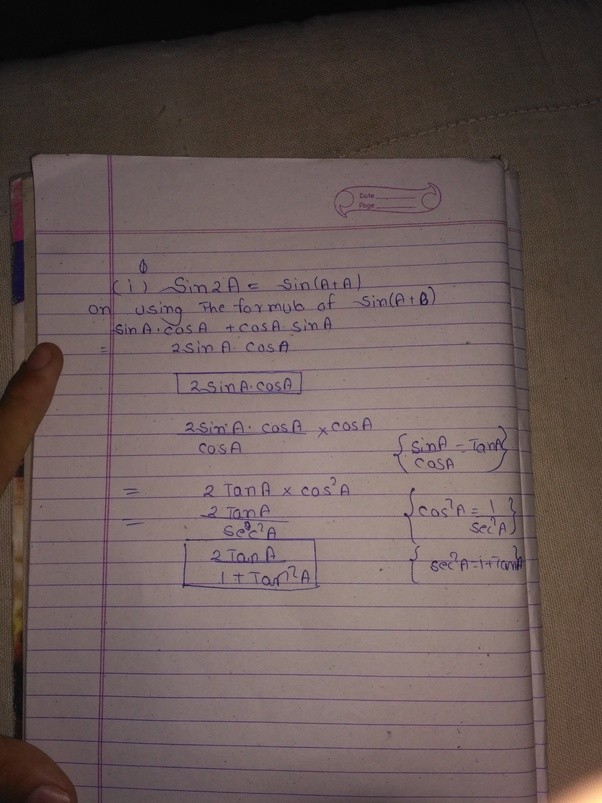 Date
Page
(i) Sin2A = Sin(A+A)
on using The formula of Sin(A+B)
SinA·cosA + cosA·sinA
= 2sinA·cosA
2sinA·cosA
2sinA·cosA/cosA × cosA
{sinA/cosA = TanA}
= 2TanA × cos²A
= 2TanA/sec²A
{cos²A = 1/sec²A}
2TanA/1+Tan²A
{sec²A = 1+Tan²A